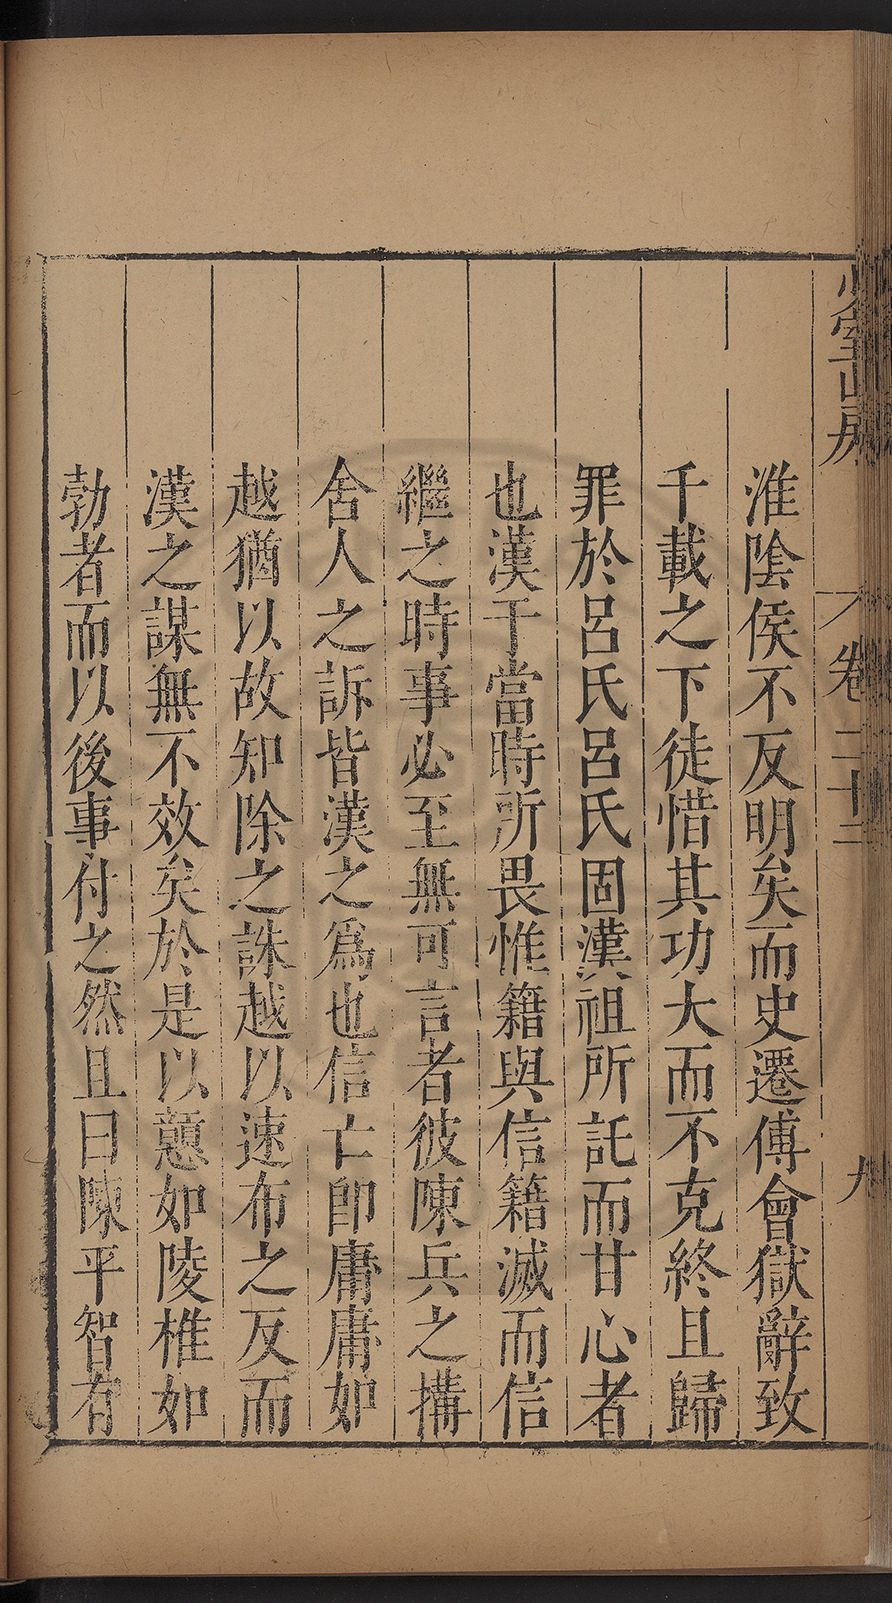 卷二十二
九
淮陰侯不反明矣而史遷傅會獄辭致
千載之下徒惜其功大而不克終且歸
罪於呂氏呂氏固漢祖所託而甘心者
也漢于當時所畏惟籍與信籍滅而信
繼之時事必至無可言者彼陳兵之搆
舍人之訴皆漢之爲也信亡卽庸庸如
越猶以故知除之誅越以速布之反而
漢之謀無不效矣於是以戅如陵椎如
勃者而以後事付之然且曰陳平智有